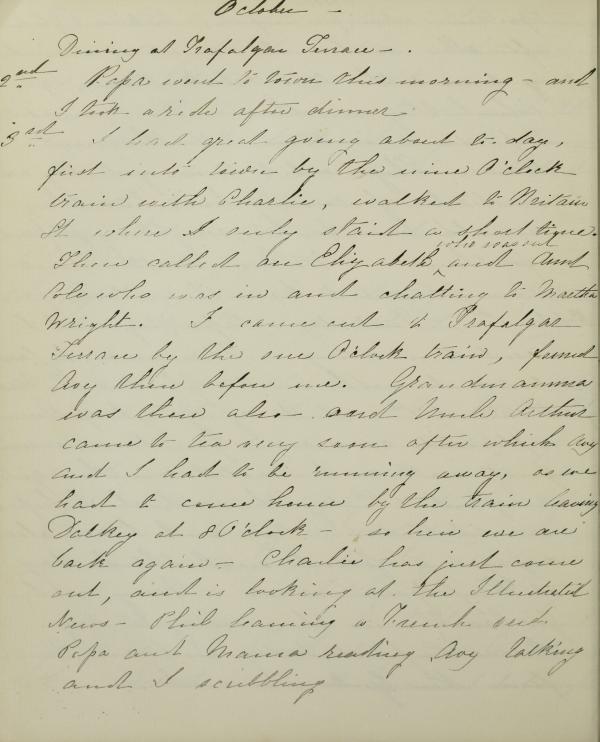 October —
Dining at Trafalgar Terrace — .
2nd Papa went to town this morning — and
I took a ride after dinner
3rd I had great going about to-day,
first into town by the nine O'clock
train with Charlie, walked to Britain
St where I only staid a short time.
Then called on Elizabeth who was out and Aunt
who was in and chatting to Martha
Wright. I came out to Trafalgar
Terrace by the one O'clock train, found
Avy there before me. Grandmamma
was there also and Uncle Arthur
came to tea very soon after which Avy
and I had to be running away, as we
had to come home by the train leaving
Dalkey at 8 O'clock — so here we are
back again — Charlie has just come
out, and is looking at the Illustrated
News — Phil learning a French verb
Papa and Mama reading Avy talking
and I scribbling